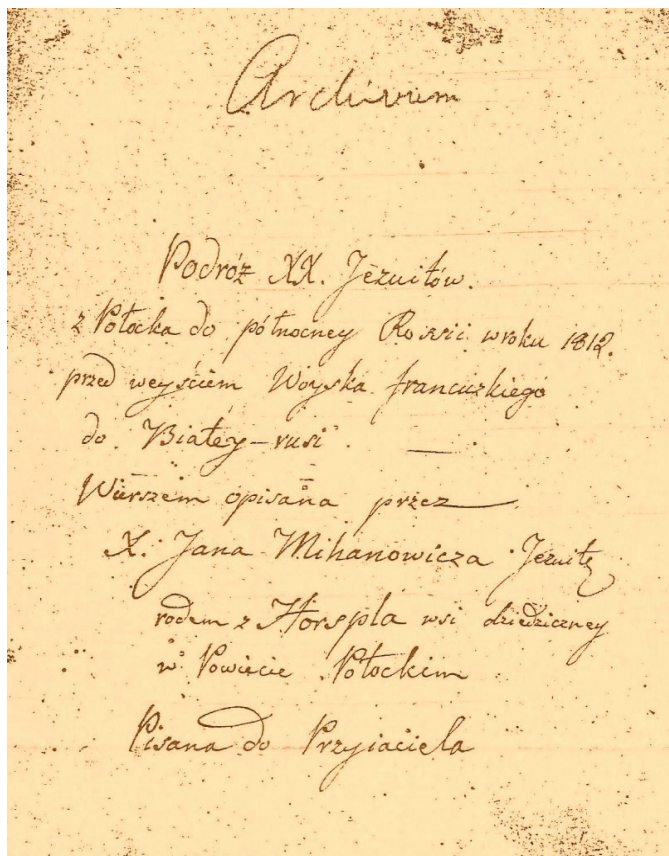 Archivum
Podróż XX. Jezuitów.
z Połocka do północney Rossii w roku 1812.
przed weyściem Woyska francuzkiego
do Białey-rusi. —
Wierszem opisana przez
X. Jana Mihanowicza Jezuitę
rodem z Horspla wsi dziedziczney
w Powiecie Połockim
Pisana do Przyiaciela